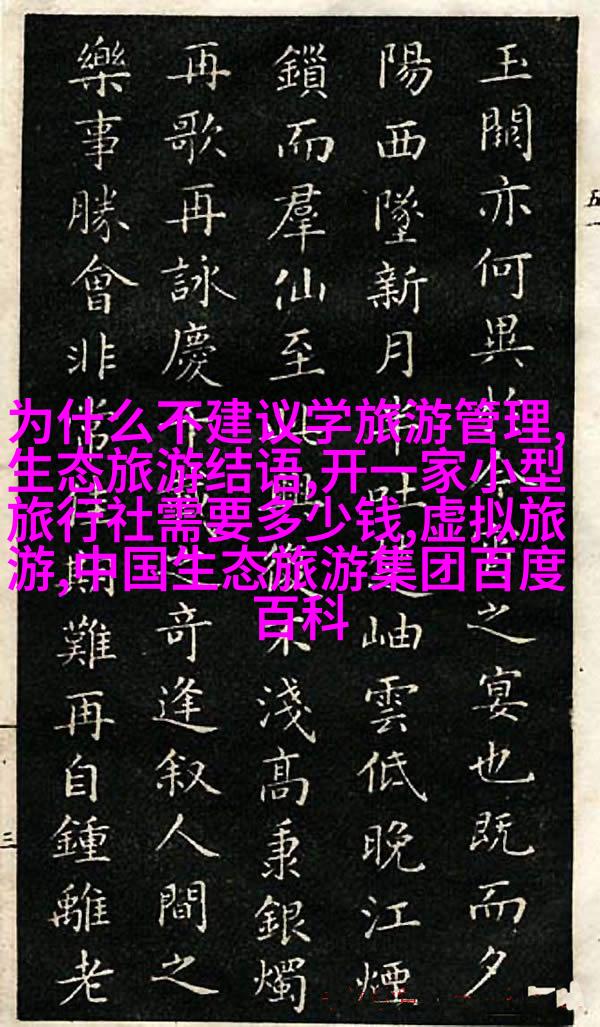 玉闕亦何異於今之宴也既而夕
陽西墜新月半吐楚岫雲低晚江煙
鎖而羣仙至此興復不淺高秉銀燭
再歌再詠慶千載之奇逢叙人間之
樂事勝會非常佳期難再自鍾離老
为什么不建议学旅游管理,
生态旅游结语,开一家小型
旅行社需要多少钱,虚拟旅
游,中国生态旅游集团百度
百科